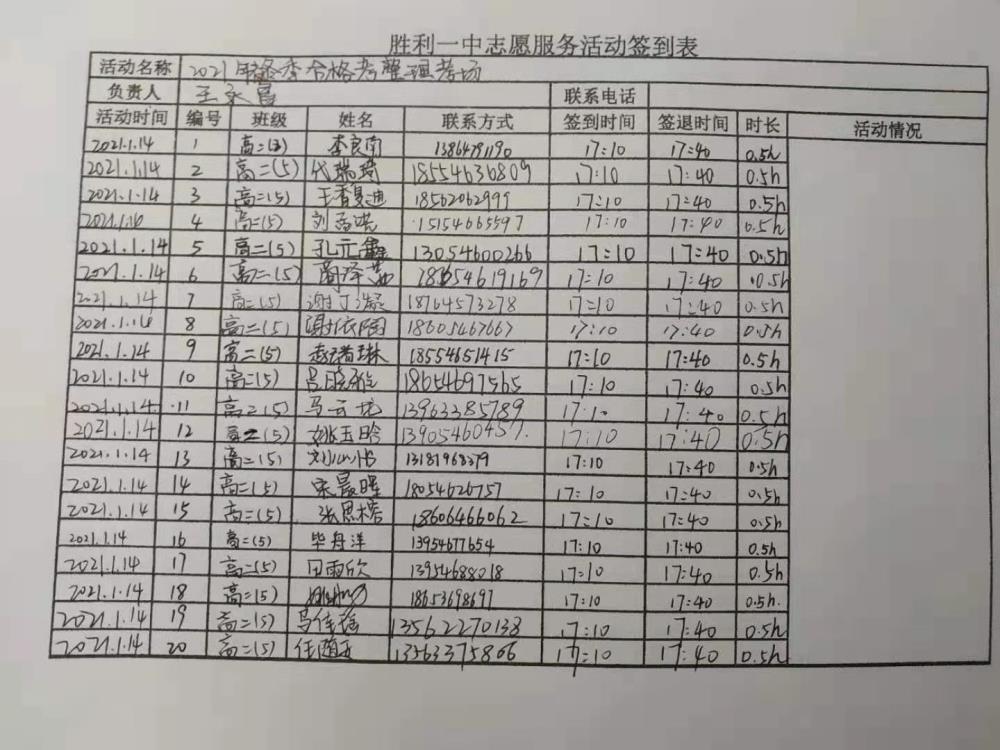 胜利一中志愿服务活动签到表
活动名称 2021年冬季合格考整理考场
负责人 王永昌 联系电话
活动时间 编号 班级 姓名 联系方式 签到时间 签退时间 时长 活动情况
2021.1.14 1 高二(5) 李良南 13864791190 17:10 17:40 0.5h
2021.1.14 2 高二(5) 代瑞琦 18554636809 17:10 17:40 0.5h
2021.1.14 3 高二(5) 王香夏迪 18562062999 17:10 17:40 0.5h
2021.1.16 4 高二(5) 刘 15154665597 17:10 17:40 0.5h
2021.1.14 5 高二(5) 孔元鑫 13054600266 17:10 17:40 0.5h
2021.1.14 6 高二(5) 18654619169 17:10 17:40 0.5h
2021.1.14 7 高二(5) 谢丁凝 18764573278 17:10 17:40 0.5h
2021.1.14 8 高二(5) 谢依陶 18605467667 17:10 17:40 0.5h
2021.1.14 9 高二(5) 赵瑞琳 18554651415 17:10 17:40 0.5h
2021.1.14 10 高二(5) 吕晓 18654697565 17:10 17:40 0.5h
2021.1.14 11 高二(5) 马云 13963385789 17:10 17:40 0.5h
2021.1.14 12 高二(5) 姚玉晗 13905460457 17:10 17:40 0.5h
2021.1.14 13 高二(5) 刘 13181968379 17:10 17:40 0.5h
2021.1.14 14 高二(5) 宋晨晖 18054626757 17:10 17:40 0.5h
2021.1.14 15 高二(5) 张思榕 18606466062 17:10 17:40 0.5h
2021.1.14 16 高二(5) 毕舟洋 13954677654 17:10 17:40 0.5h
2021.1.14 17 高二(5) 田雨欣 13954688018 17:10 17:40 0.5h
2021.1.14 18 高二(5) 18653698697 17:10 17:40 0.5h
2021.1.14 19 高二(5) 马佳瑶 13562270138 17:10 17:40 0.5h
2021.1.14 20 高二(5) 任随玉 13563375866 17:10 17:40 0.5h